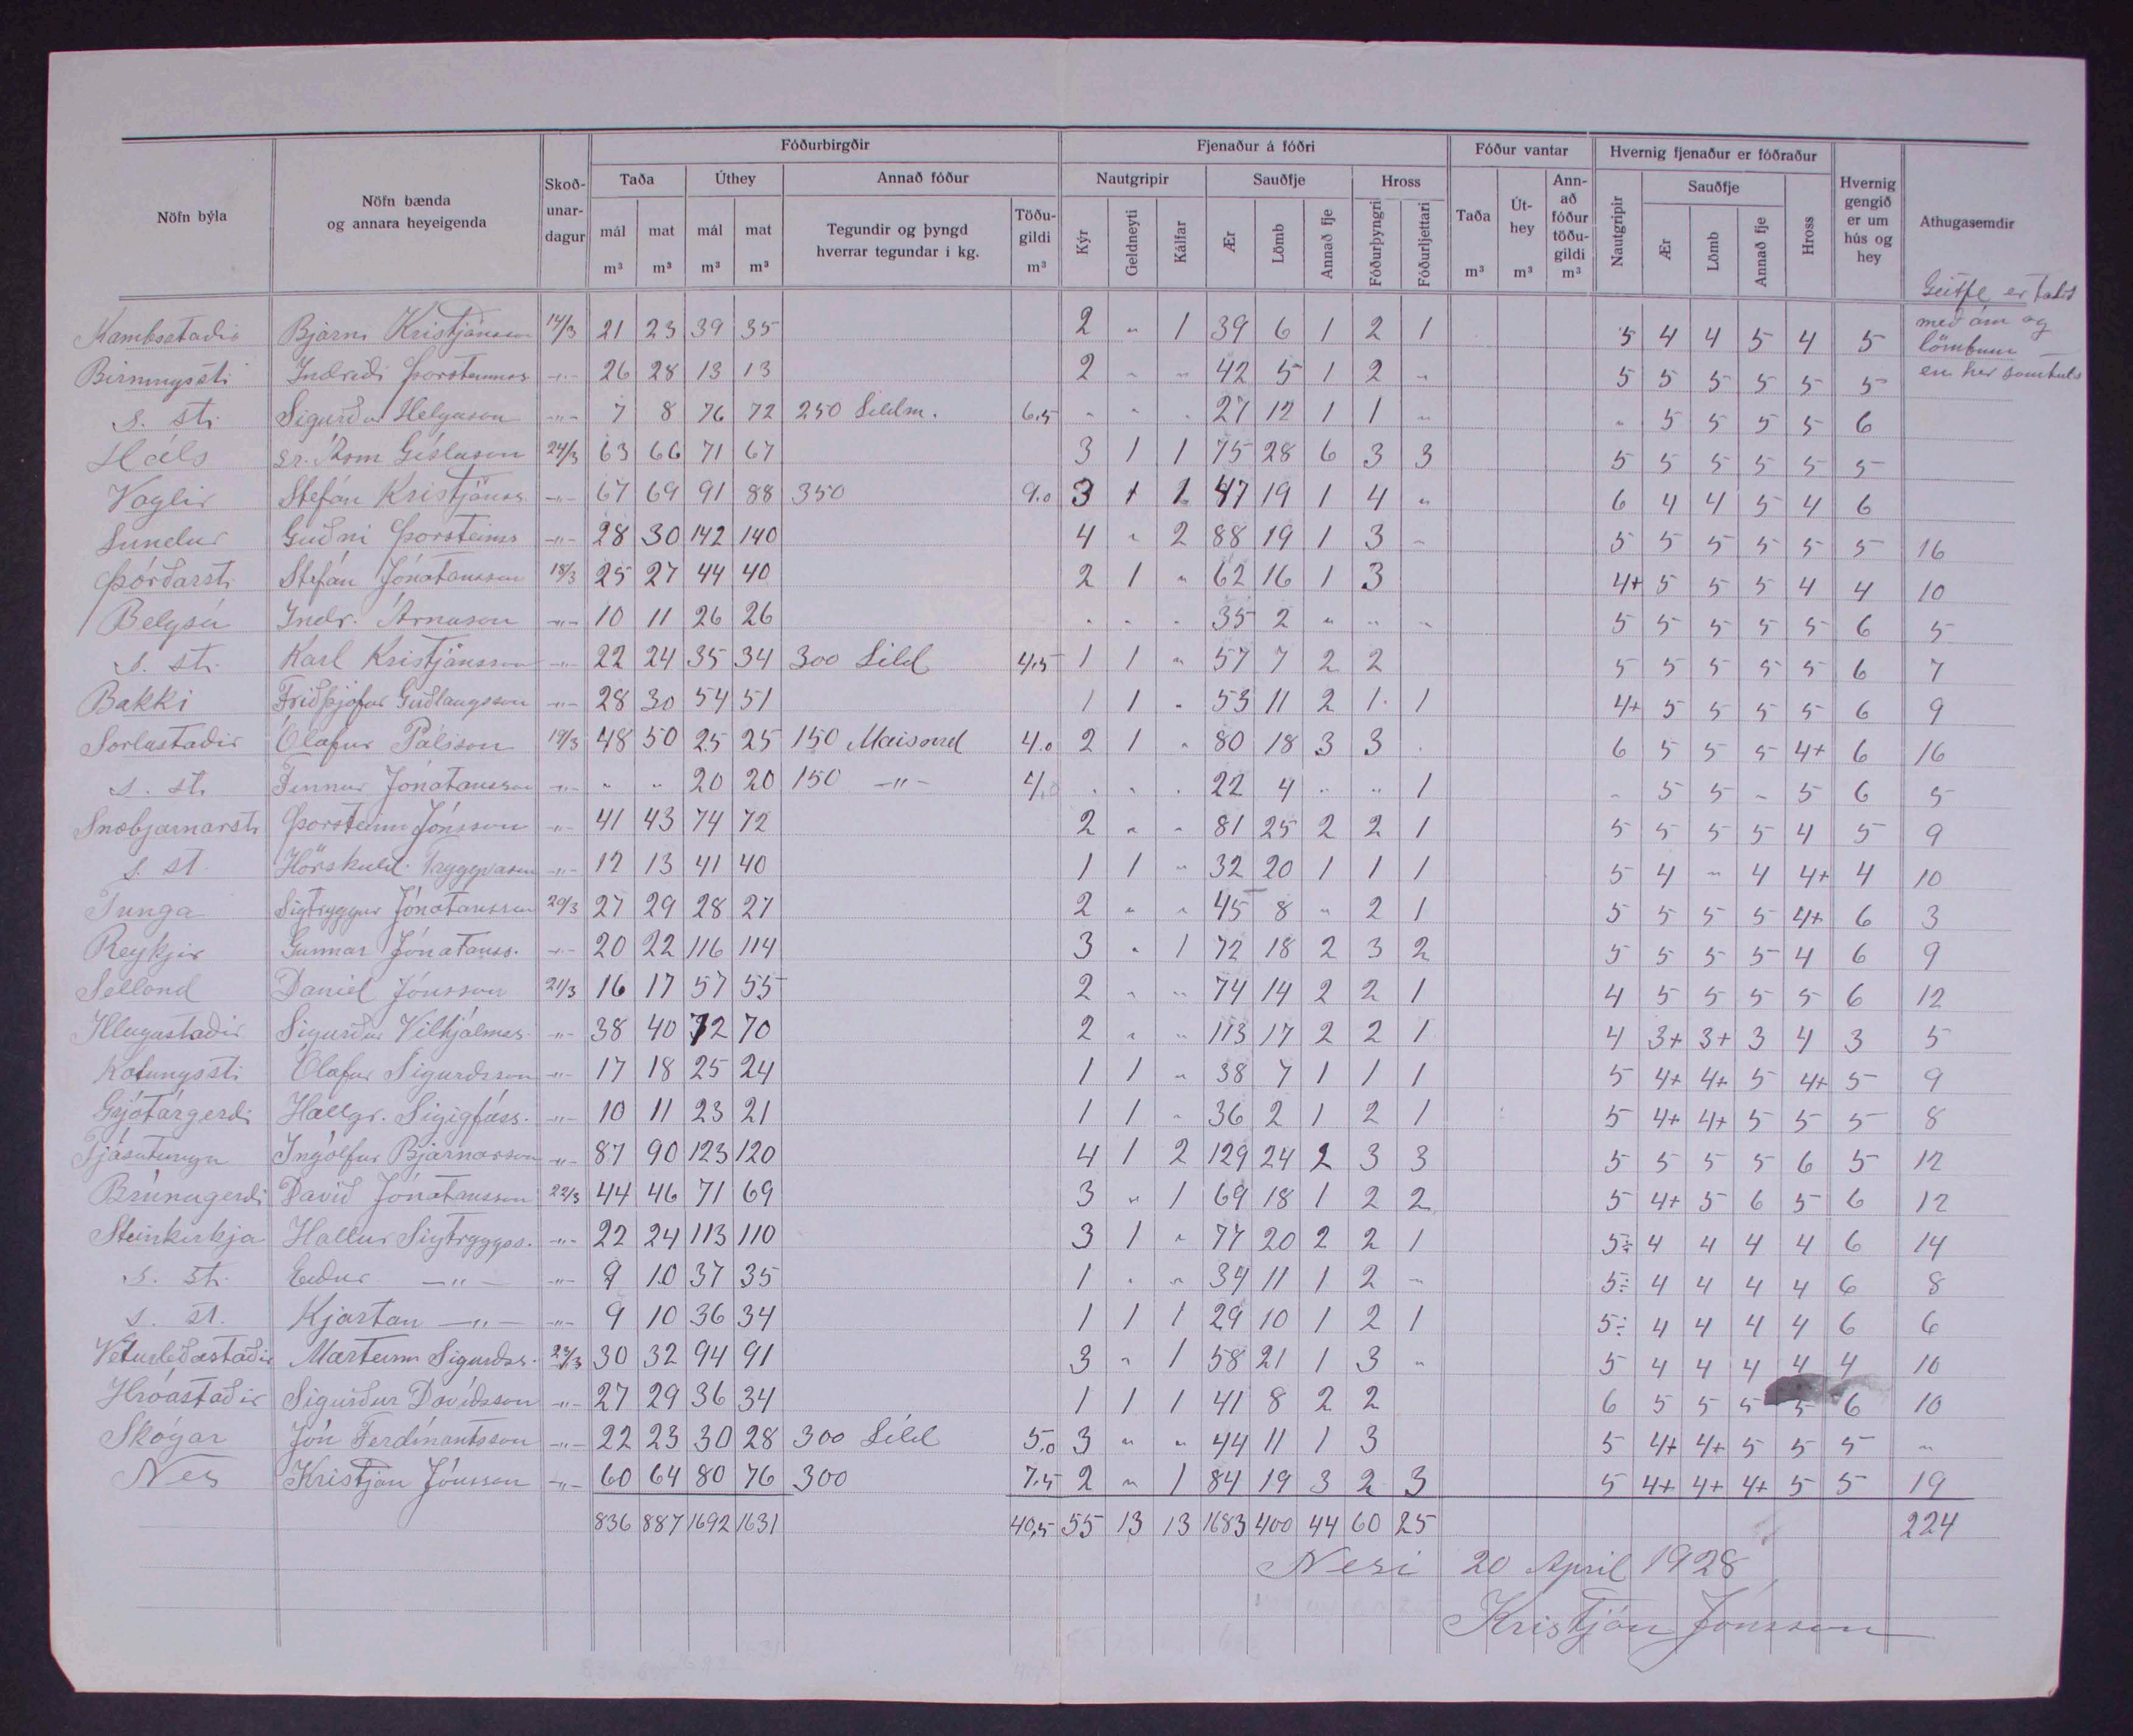 Fóðurbirgðir Fjenaður á fóðri Fóður vantar Hvernig fjenaður er fóðraður
Nöfn býla Nöfn bænda og annara heyeigenda Skoð-unar-dagur Taða Úthey Annað fóður Nautgripir Sauðfje Hross Taða m³ Út-hey m³ Ann-að fóður töðu-gildi m³ Nautgripir Sauðfje Hross Hvernig gengið er um hús og hey Athugasemdir
mál m³ mat m³ mál m³ mat m³ Tegundir og þyngd hverrar tegundar í kg. Töðu-gildi m³ Kýr Geldneyti Kálfar Ær Lömb Annað fje Fóðurþyngri Fóðurljettari Ær Lömb Annað fje
Geitfé er talið
með ám og
lömbum
en hér samtals
Kambsstaðir Bjarni Kristjánsson 14/3 21 23 39 35 2 " 1 39 6 1 2 1 5 4 4 5 4 5
Birningsst. Indriði Þorsteinss. -"- 26 28 13 13 2 " " 42 5 1 2 " 5 5 5 5 5 5
s. st. Sigurður Helgason -"- 7 8 76 72 250 Síldm. 6,5 " " " 27 12 1 1 " " 5 5 5 5 6
Háls sr. Ásm Gíslason 24/3 63 66 71 67 3 1 1 75 28 6 3 3 5 5 5 5 5 5
Voglir Stefán Kristjánss. -"- 67 69 91 88 350 9.0 3 1 1 47 19 1 4 " 6 4 4 5 4 6
Lundur Guðni Þorsteinss -"- 28 30 142 140 4 " 2 88 19 1 3 " 5 5 5 5 5 5 16
Þórðarst. Stefán Jónatansson 18/3 25 27 44 40 2 1 " 62 16 1 3 4+ 5 5 5 4 4 10
Belgsá Indr. Árnason -"- 10 11 26 26 " " " 35 2 " " " 5 5 5 5 5 6 5
s. st. Karl Kristjánsson -"- 22 24 35 34 300 Síld 4,5 1 1 " 57 7 2 2 5 5 5 5 5 6 7
Bakki Friðþjófur Guðlaugsson -"- 28 30 54 51 1 1 " 53 11 2 1 1 4+ 5 5 5 5 6 9
Sörlastaðir Ólafur Pálsson 19/3 48 50 25 25 150 Maísand 4.0 2 1 " 80 18 3 3 . 6 5 5 5 4+ 6 16
s. st. Finnur Jónatansson -"- " " 20 20 150 -"- 4,0 " " " 22 4 " " 1 " 5 5 " 5 6 5
Snæbjarnarst. Þorsteinn Jónsson -"- 41 43 74 72 2 " " 81 25 2 2 1 5 5 5 5 4 5 9
s. st. Höskuld. Tryggvason -"- 12 13 41 40 1 1 " 32 20 1 1 1 5 4 " 4 4+ 4 10
Tunga Sigtryggur Jónatansson 20/3 27 29 28 27 2 " " 45 8 " 2 1 5 5 5 5 4+ 6 3
Reykjir Gunnar Jónatanss. -"- 20 22 116 114 3 " 1 72 18 2 3 2 5 5 5 5 4 6 9
Selland Daniel Jónsson 21/3 16 17 57 55 2 " " 74 14 2 2 1 4 5 5 5 5 6 12
Illugastaðir Sigurður Vilhjálmss. -"- 38 40 72 70 2 " " 113 17 2 2 1 4 3+ 3+ 3 4 3 5
Kotungsst. Ólafur Sigurdsson -"- 17 18 25 24 1 1 " 38 7 1 1 1 5 4+ 4+ 5 4+ 5 9
Grjótárgerði Hallgr. Sigigfúss. -"- 10 11 23 21 1 1 " 36 2 1 2 1 5 4+ 4+ 5 5 5 8
Fjósatunga Ingólfur Bjarnarson -"- 87 90 123 120 4 1 2 129 24 2 3 3 5 5 5 5 6 5 12
Brúnagerði Davíð Jónatansson 22/3 44 46 71 69 3 " 1 69 18 1 2 2 5 4+ 5 6 5 6 12
Steinkirkja Hallur Sigtryggss. -"- 22 24 113 110 3 1 " 77 20 2 2 1 5÷ 4 4 4 4 6 14
s. st. Eiður -"- -"- 9 10 37 35 1 " " 34 11 1 2 " 5÷ 4 4 4 4 6 8
s. st. Kjartan -"- -"- 9 10 36 34 1 1 1 29 10 1 2 1 5÷ 4 4 4 4 6 6
Veturliðastaðir Marteinn Sigurðss. 23/3 30 32 94 91 3 " 1 58 21 1 3 " 5 4 4 4 4 4 10
Hróastaðir Sigurður Davíðsson -"- 27 29 36 34 1 1 1 41 8 2 2 6 5 5 5 5 6 10
Skógar Jón Ferdinantsson -"- 22 23 30 28 300 Síld 5.0 3 " " 44 11 1 3 5 4+ 4+ 5 5 5 "
Nes Kristján Jónsson -"- 60 64 80 76 300 7.5 2 " 1 84 19 3 2 3 5 4+ 4+ 4+ 5 5 19
836 887 1692 1631 40,5 55 13 13 1683 400 44 60 25 224
Nesi 20 April 1928
Kristján Jónsson